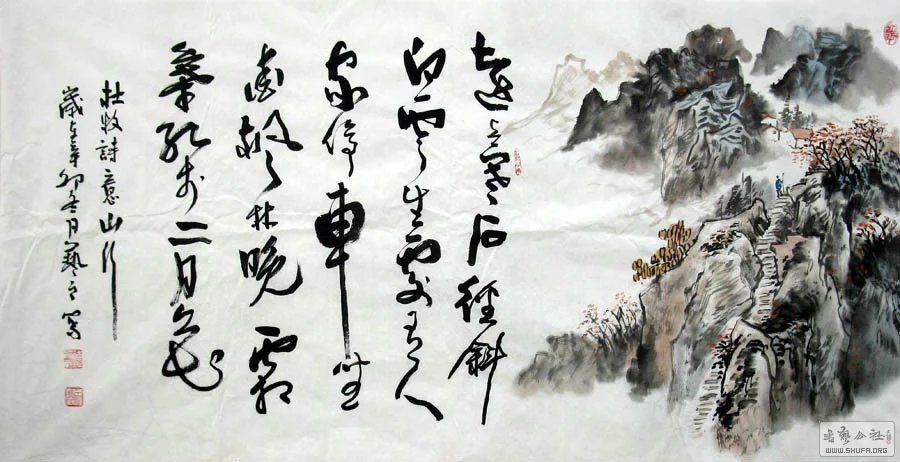 遠上寒山石徑斜
白雲生處有人
家停車坐
愛楓林晚霜
葉紅於二月花
杜牧詩意山行
歲在辛卯冬月藝之寫
書藝公社
WWW.SHUFA.ORG